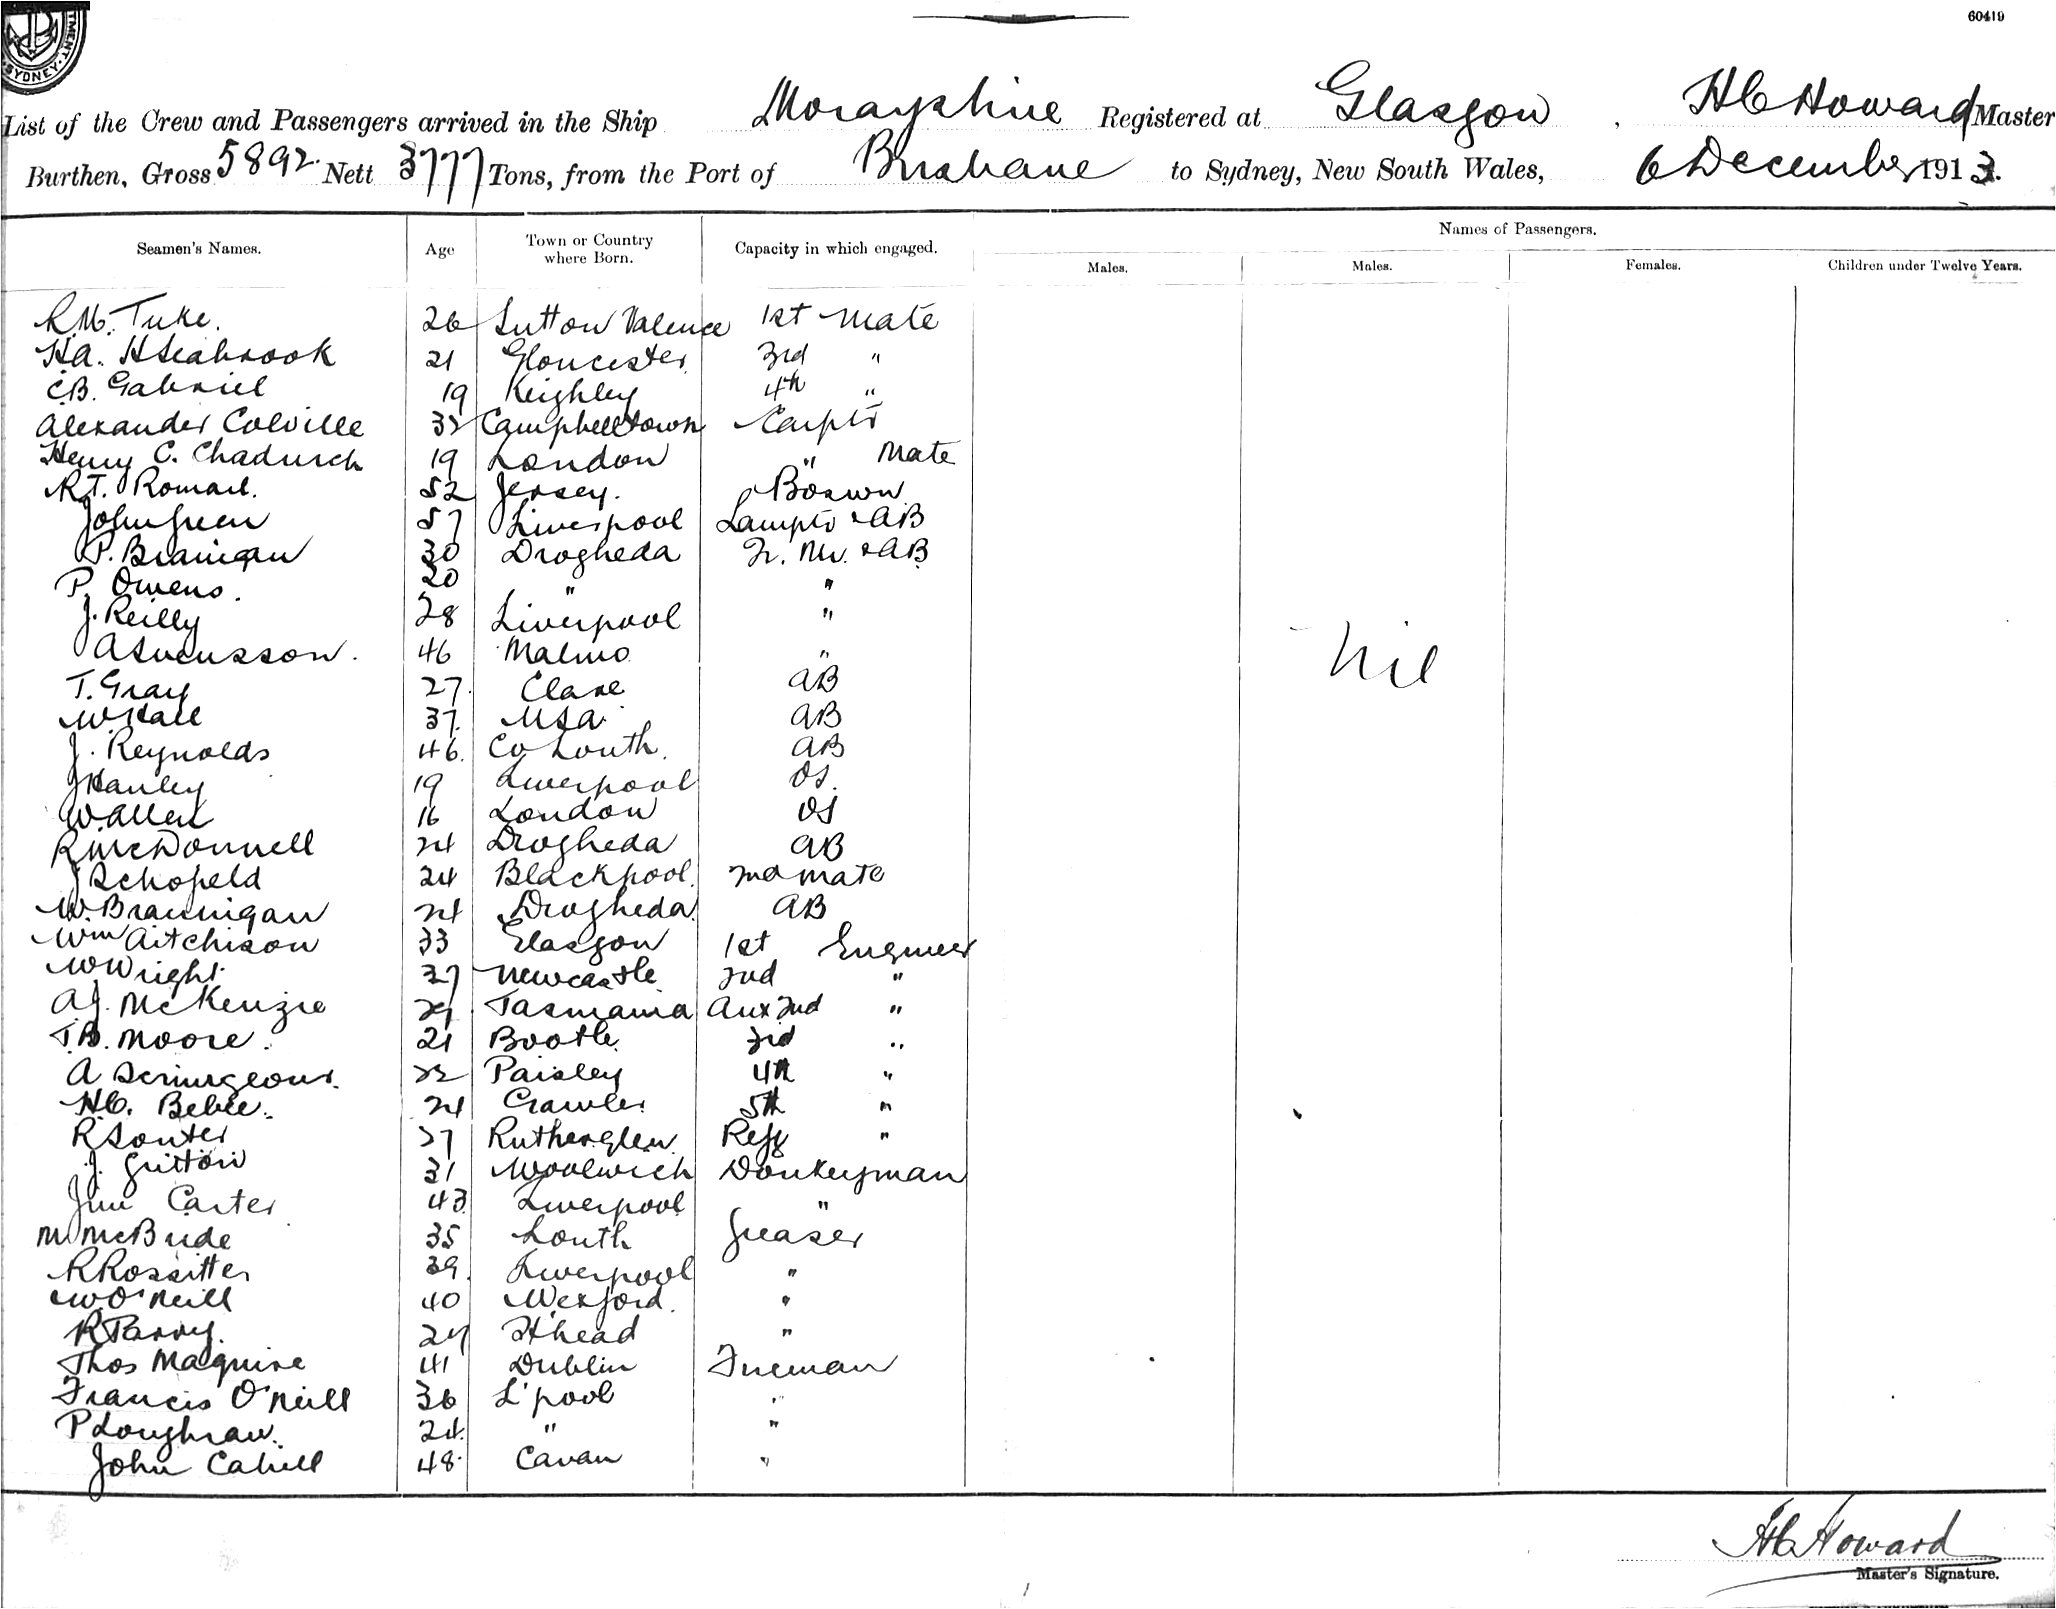 TMENT. SYDNEY.
60419
List of the Crew and Passengers arrived in the Ship Morayshire Registered at Glasgow, HC Howard Master
Burthen, Gross 5892 Nett 3777 Tons, from the Port of Brisbane to Sydney, New South Wales, 6 December 1913.
Seamen's Names. Age Town or Country where Born. Capacity in which engaged. Names of Passengers.
Males. Males. Females. Children under Twelve Years.
R.M. Tuke. 26 Sutton Valence 1st Mate
H.A. Hseabrook 21 Gloucester 3rd "
C.B. Gabriel 19 Keighley 4th "
Alexander Colville 32 Campbelltown Carptr
Henry C. 19 London " Mate
R.T. Romail. 52 Jersey. Boswn
John Green 57 Liverpool Lamptr & AB
P. Branigan 30 Drogheda & AB
P. Owens. 20 " "
J. Reilly 28 Liverpool "
A Svensson. 46 Malmo "
T. Gray 27. Clare AB
W Hall 37. USA. AB
J. Reynolds 46. Co Louth. AB
J Hanley 19 Liverpool OS.
W. Allen 16 London OS
R McDonnell 24 Drogheda AB
J Schofield 24 Blackpool. 2nd Mate
W. Brannigan 24 Drogheda. AB
Wm Aitchison 33 Glasgow 1st Engineer
W Wright 37 Newcastle 2nd "
A.J. McKenzie 29 Tasmania Aux 2nd "
T.B. Moore. 21 Bootle. 3rd "
A Scrimgeour. 22 Paisley 4th "
H.C. 24 5th "
R Souter 27 Rutherglen. Refg "
J. Gritton 31 Woolwich Donkeyman
Jno Carter 43 Liverpool "
M McBride 35 Louth Greaser
R Rossitter 39. Liverpool "
W O'Neill 40 Wexford. "
R Parry. 27 H'head "
Thos Maguire 41 Dublin Fireman
Francis O'Neill 36 L'pool "
P Loughran. 24. " "
John Cahill 48. Cavan "
Nil
HC Howard
Master's Signature.